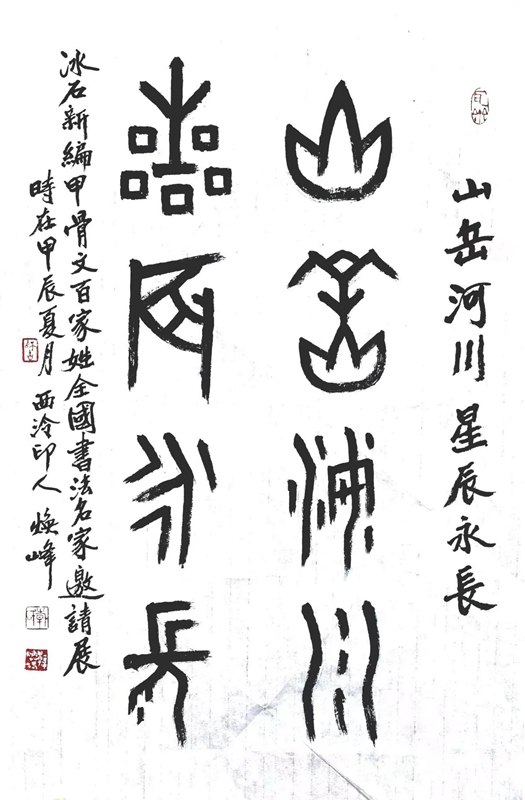 山岳河川星辰永長
山岳河川
星辰永長
冰石新編甲骨文百家姓全國書法名家邀請展
時在甲辰夏月西泠印人煥峰